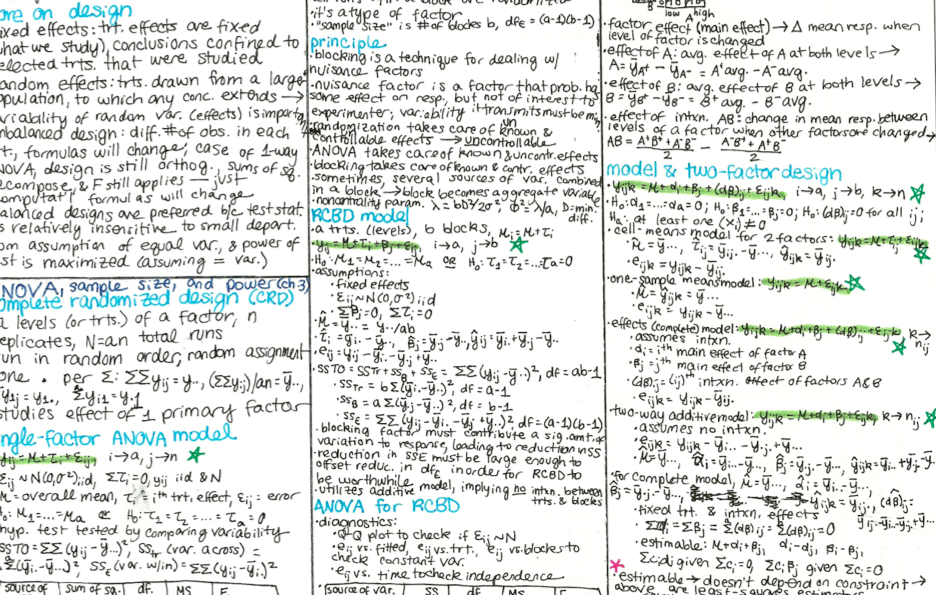 ore on design
ixed effects: trt. effects are fixed
hat we study), conclusions confined to
elected trts. that were studied
andom effects: trts. drawn from a large
opulation, to which any conc. extends →
ariability of random var. (effects) is importa
nbalanced design: diff. # of obs. in each
t., formulas will change; case of 1-way
NOVA, design is still orthog. sums of sq.
ecompose, & F still applies — just
omputat'l formulas will change
alanced designs are preferred b/c test stat.
s relatively insensitive to small depart.
om assumption of equal var., & power of
st is maximized (assuming = var.)
NOVA, sample size, and power (ch 3)
omplete randomized design (CRD)
a levels (or trts.) of a factor, n
eplicates, N=an total runs
un in random order, random assignment
one
per Σ: ΣΣyij = y.., (ΣΣyij)/an = ȳ..,
studies effect of 1 primary factor
ngle-factor ANOVA model
yij = M+τi+Eij, i→a, j→n ☆
Eij ~ N(0,σ²) iid, Στi=0, yij iid & N
M = overall mean, τi ith trt. effect, εij = error
Ho: M1=M2=...=Ma or Ho: τ1=τ2=...=τa=0
hyp. test tested by comparing variability
SSTO = ΣΣ(yij-ȳ..)², SSTr (var. across) =
Σ(ȳi.-ȳ..)², SSE (var. w/in) = ΣΣ(yij-ȳi.)²
source of sum of sq. df. MS F
it's a type of factor
"sample size" is # of blocks b, dfE = (a-1)(b-1)
principle
blocking is a technique for dealing w/
nuisance factors
nuisance factor is a factor that prob. ha
some effect on resp., but not of interest to
experimenter; variability it transmits must be min
randomization takes care of unknown &
uncontrollable effects → uncontrollable
ANOVA takes care of known & uncontr. effects
blocking takes care of known & contr. effects
sometimes, several sources of var. combined
in a block → block becomes aggregate variable
noncentrality param. λ = bD²/2σ², Φ² = λ/a, D=min. diff.
RCBD model
a trts. (levels), b blocks, Mi = M+τi
yij = M+τi+Bj+Eij, i→a, j→b ☆
Ho: M1=M2=...=Ma OR Ho: τ1=τ2=...τa=0
assumptions:
fixed effects
Eij ~ N(0,σ²) iid
Σβj=0, Στi=0
M̂ = ȳ.. = y../ab
τ̂i = ȳi.-ȳ.., β̂j = ȳ.j-ȳ.., ŷij = ȳi.+ȳ.j-ȳ..
eij = yij-ȳi.-ȳ.j+ȳ..
SSTO = SSTr + SSB + SSE = ΣΣ(yij-ȳ..)², df = ab-1
SSTr = bΣ(ȳi.-ȳ..)², df = a-1
SSB = aΣ(ȳ.j-ȳ..)², df = b-1
SSE = ΣΣ(yij-ȳi.-ȳ.j+ȳ..)², df = (a-1)(b-1)
blocking factor must contribute a sig. amt. of
variation to response, leading to reduction in SS
reduction in SSE must be large enough to
offset reduc. in dfE in order for RCBD to
be worthwhile
utilizes additive model, implying no intxn. between
trts. & blocks
ANOVA for RCBD
diagnostics:
Q-Q plot to check if Eij ~ N
eij vs. fitted, eij vs. trt., eij vs. blocks to
check constant var.
eij vs. time to check independence
source of var. SS df MS F
low A high
factor effect (main effect) → Δ mean resp. when
level of factor is changed
effect of A: avg. effect of A at both levels →
A = ȳA+ - ȳA- = A+avg. - A-avg.
effect of B: avg effect of B at both levels →
B = ȳB+ - ȳB- = B+avg. - B-avg.
effect of intxn. AB: change in mean resp. between
levels of a factor when other factors are changed →
AB = A+B+ + A-B- / 2 - A-B+ + A+B- / 2
model & two-factor design
yijk = M+αi+Bj+(αB)ij+εijk i→a, j→b, k→n ☆
Ho: α1=...=αa=0; Ho: B1=...=Bj=0; Ho: (αB)ij=0 for all ij;
Ha: at least one (xi) ≠ 0
cell-means model for 2 factors: yijk = Mij+Eijk ☆
one-sample means model: yijk = M+Eijk ☆
M̂ = ŷijk = ȳ...
eijk = yijk-ȳ...
effects (complete) model: yijk = M+αi+Bj+(αB)ij+εijk, k→nij ☆
assumes intxn.
αi = ith main effect of factor A
Bj = jth main effect of factor B
(αB)ij = (ij)th intxn. effect of factors A&B
eijk = yijk-ȳij.
two-way additive model: yijk = M+αi+Bj+Eijk, k→nij ☆
assumes no intxn.
eijk = yijk-ȳi..-ȳ.j.+ȳ...
M̂ = ȳ..., α̂i = ȳi..-ȳ..., β̂j = ȳ.j.-ȳ..., ŷijk = ȳi..+ȳ.j.-ȳ...
for complete model, M̂ = ȳ..., α̂i = ȳi..-ȳ...,
β̂j = ȳ.j.-ȳ..., (αβ)ij =
ȳij.-ȳi..-ȳ.j.+ȳ...
fixed trt. & intxn. effects
Σαi = Σβj = Σ(αβ)ij = Σ(αβ)ij = 0
estimable: M+αi+Bj, αi-αj, Bi-Bj,
Σciαi given Σci=0, ΣciBi given Σci=0
estimable → doesn't depend on constraint →
above are least-squares estimators